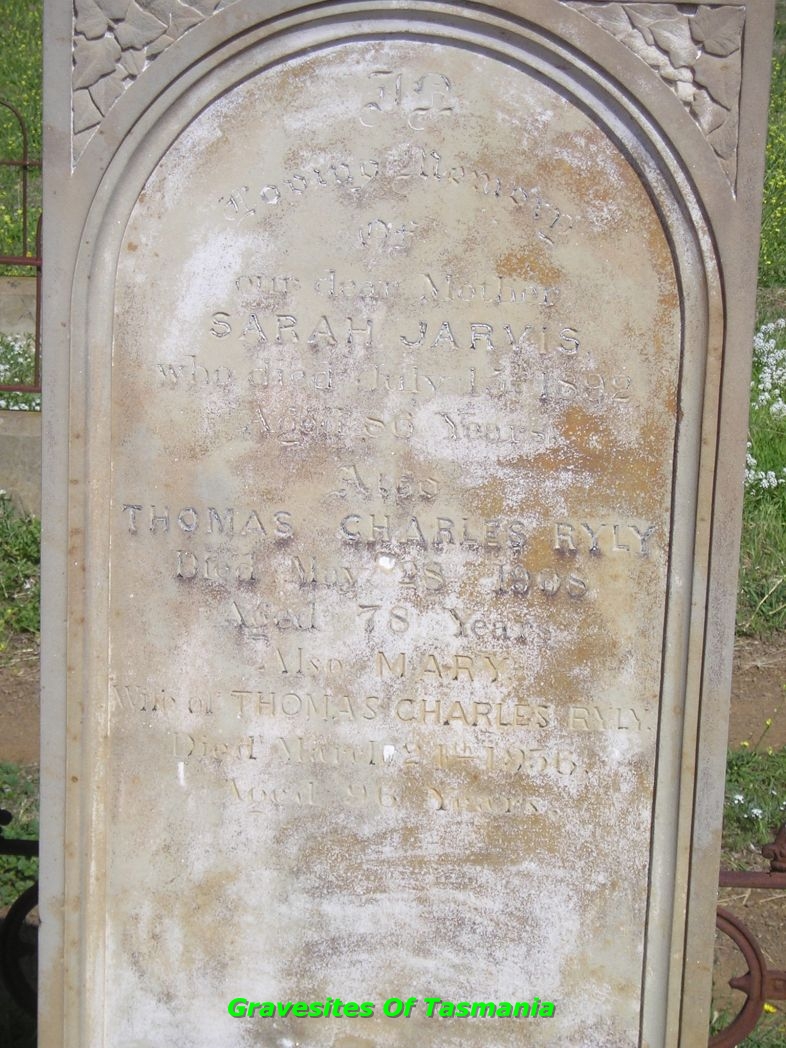 In
Loving Memory
Of
our dear Mother
SARAH JARVIS,
who died July 15th 1892
Aged 86 Years.
Also
THOMAS CHARLES RYLY
Died May 28 1908
Aged 78 Years
Also MARY.
Wife of THOMAS CHARLES RYLY.
Died March 24th 1936.
Aged 96 Years.
Gravesites Of Tasmania